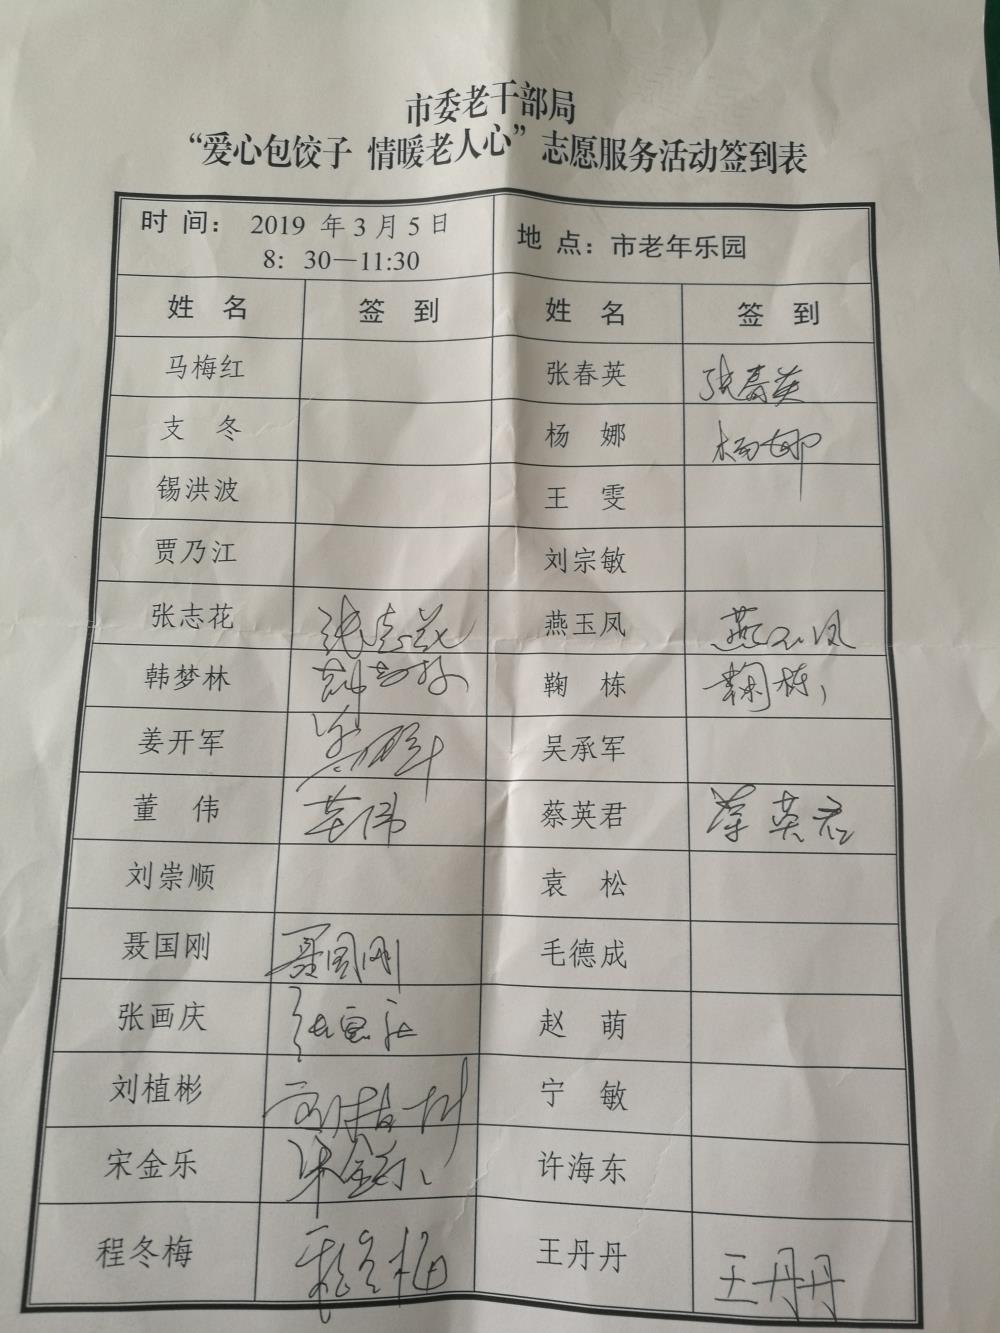 市委老干部局
“爱心包饺子 情暖老人心”志愿服务活动签到表
时 间： 2019 年 3 月 5 日 地 点：市老年乐园
8：30—11:30
姓 名 签 到 姓 名 签 到
马梅红 张春英 张春英
支 冬 杨 娜 杨娜
锡洪波 王 雯
贾乃江 刘宗敏
张志花 张志花 燕玉凤 燕玉凤
韩梦林 韩梦林 鞠 栋 鞠栋
姜开军 姜开军 吴承军
董 伟 董伟 蔡英君 蔡英君
刘崇顺 袁 松
聂国刚 聂国刚 毛德成
张画庆 张画庆 赵 萌
刘植彬 刘植彬 宁 敏
宋金乐 宋金乐 许海东
程冬梅 程冬梅 王丹丹 王丹丹